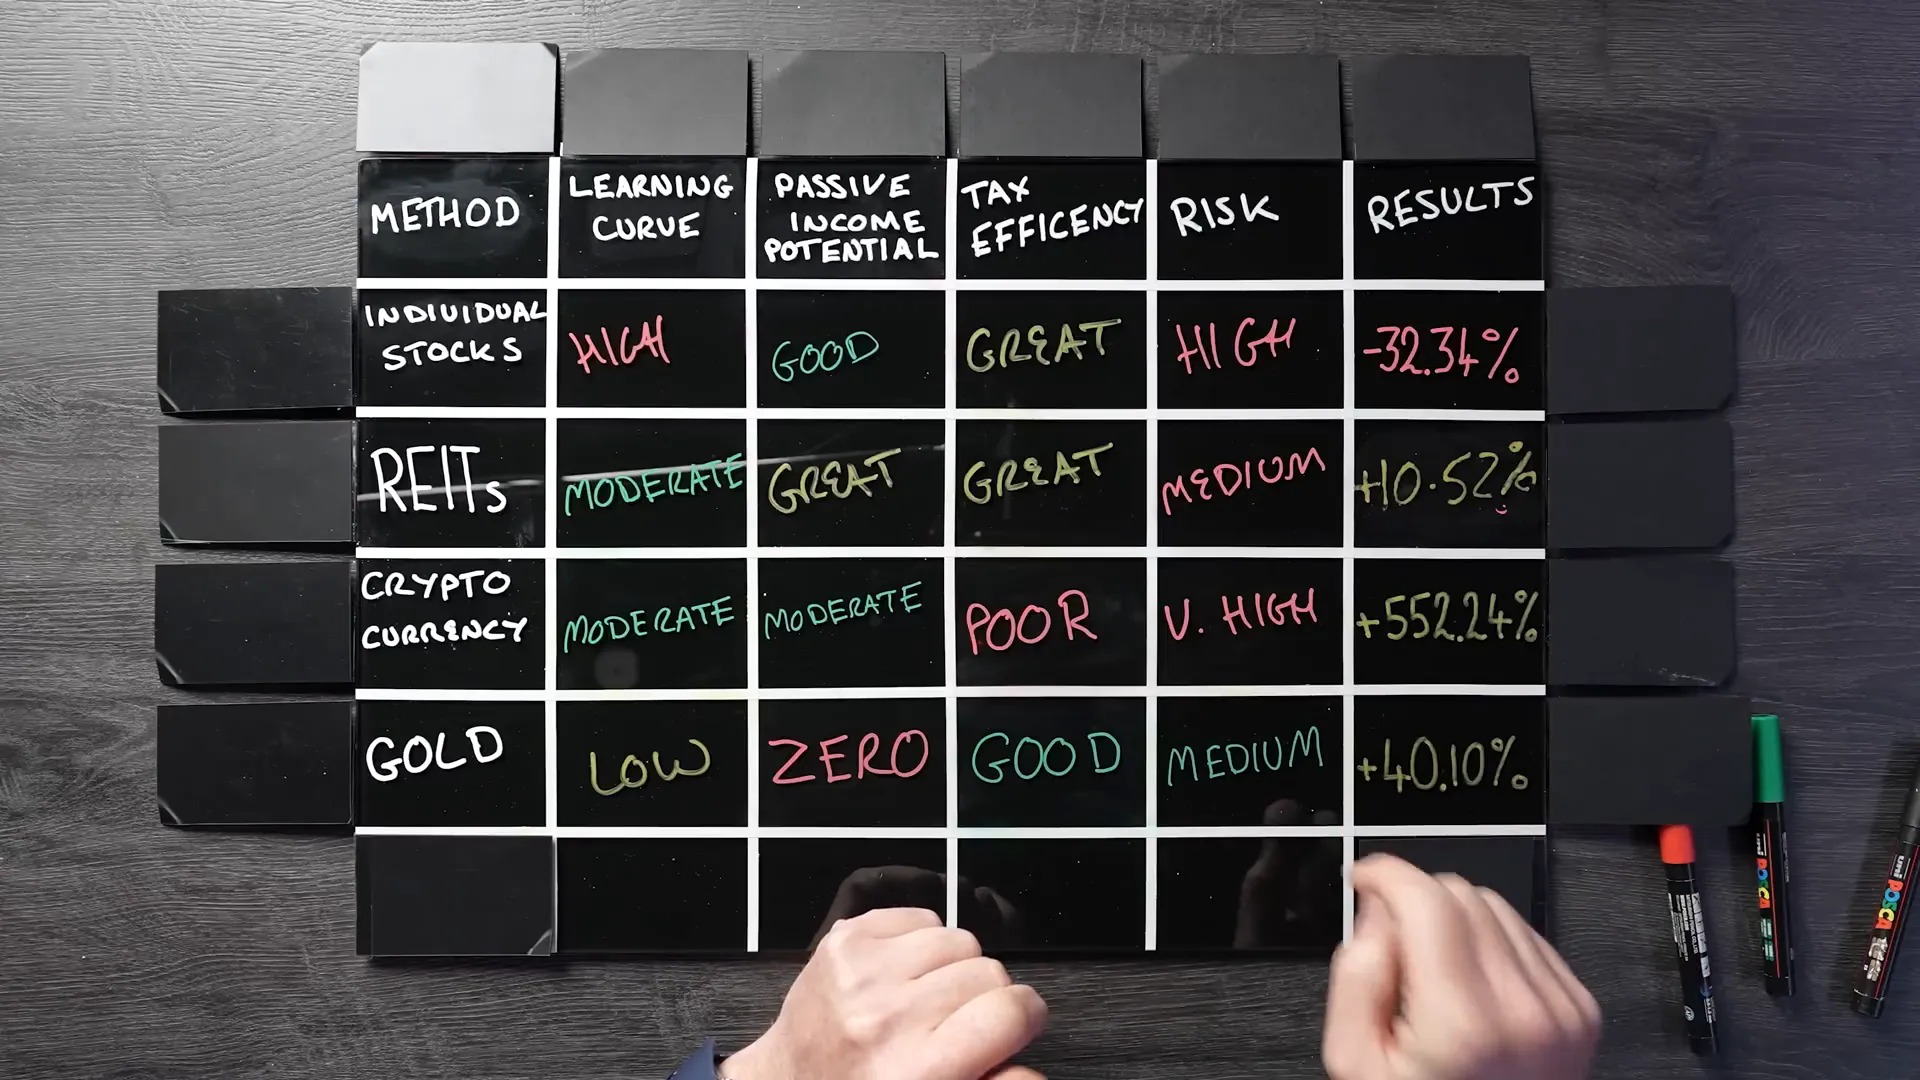 METHOD
LEARNING
CURVE
PASSIVE
INCOME
POTENTIAL
TAX
EFFICENCY
RISK
RESULTS
INDIVIDUAL
STOCKS
HIGH
GOOD
GREAT
HIGH
-32.34%
REITs
MODERATE
GREAT
GREAT
MEDIUM
+10.52%
CRYPTO
CURRENCY
MODERATE
MODERATE
POOR
V. HIGH
+552.24%
GOLD
LOW
ZERO
GOOD
MEDIUM
+40.10%
uni
POSCA
uni
POSCA